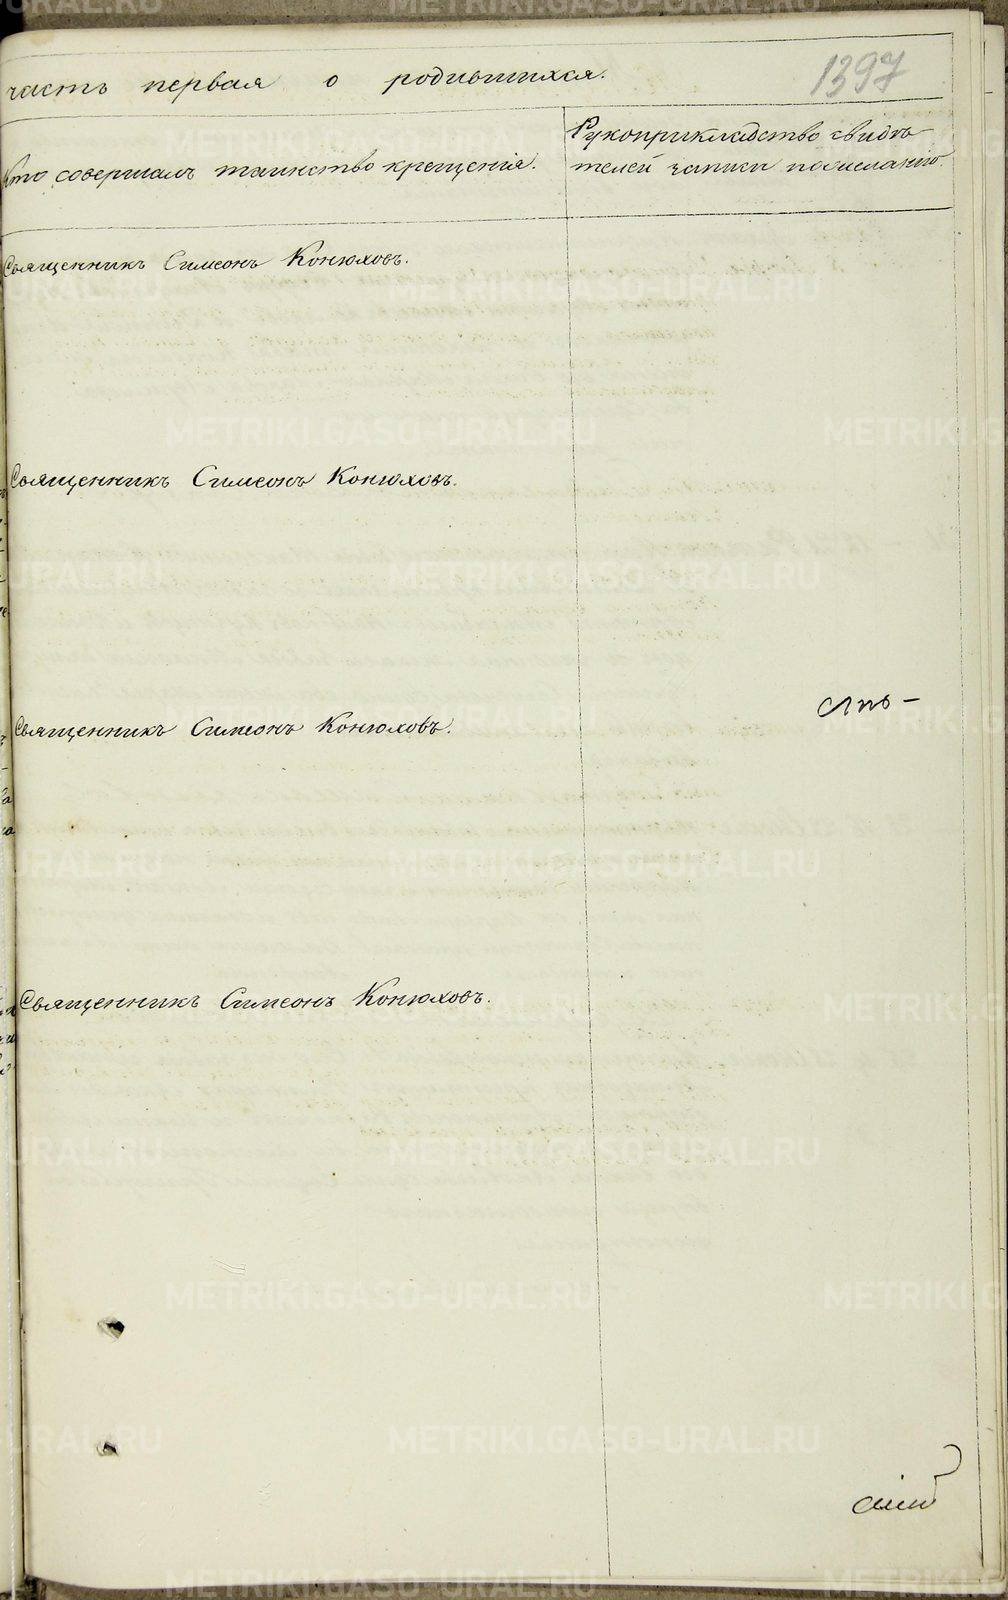 часть первая о родившихся.
1397
Кто совершалъ таинство крещенія.
Рукоприкладство свидѣ-
телей записи по желанію.
Священникъ Симеонъ Конюховъ.
Священникъ Симеонъ Конюховъ.
Священникъ Симеонъ Конюховъ.
Священникъ Симеонъ Конюховъ.
METRIKI.GASO-URAL.RU